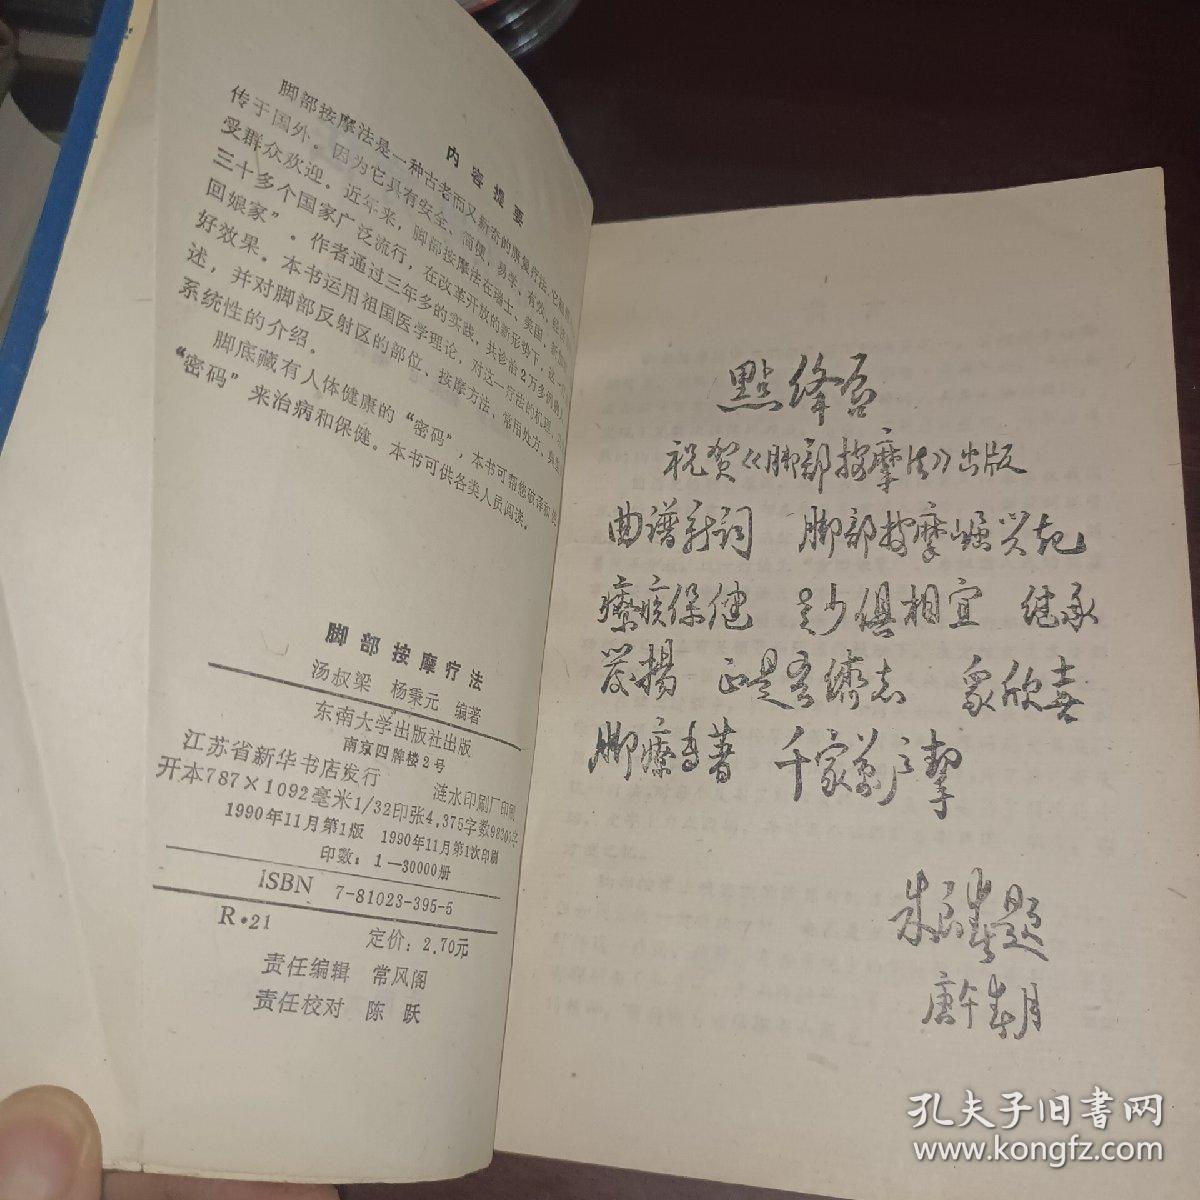 内容提要
脚部按摩法是一种古老而又新奇的康复疗法,它
传于国外。因为它具有安全、简便、易学、有效、经济
受群众欢迎。近年来,脚部按摩法在瑞士、美国、新加
三十多个国家广泛流行,在改革开放的新形势下,这
回娘家”。作者通过三年多的实践,共诊治2万多例
好效果。本书运用祖国医学理论,对这一疗法的机理
述,并对脚部反射区的部位、按摩方法、常用处方、
系统性的介绍。
脚底藏有人体健康的“密码”,本书可帮您破译和使
“密码”来治病和保健。本书可供各类人员阅读。
脚部按摩疗法
汤叔梁 杨秉元 编著
东南大学出版社出版
南京四牌楼2号
江苏省新华书店发行 涟水印刷厂印刷
开本787×1092毫米1/32印张4.375字数98304字
1990年11月第1版 1990年11月第1次印刷
印数:1—30000册
ISBN 7-81023-395-5
R·21 定价:2.70元
责任编辑 常风阁
责任校对 陈 跃
點绛唇
祝贺《脚部按摩法》出版
曲谱新词 脚部按摩崛兴起
療疾保健 老少俱相宜 继承
發揚 正是吾儕志 家欣喜
脚療专著 千家萬户挚
题
庚午 月
孔夫子旧书网
www.kongfz.com